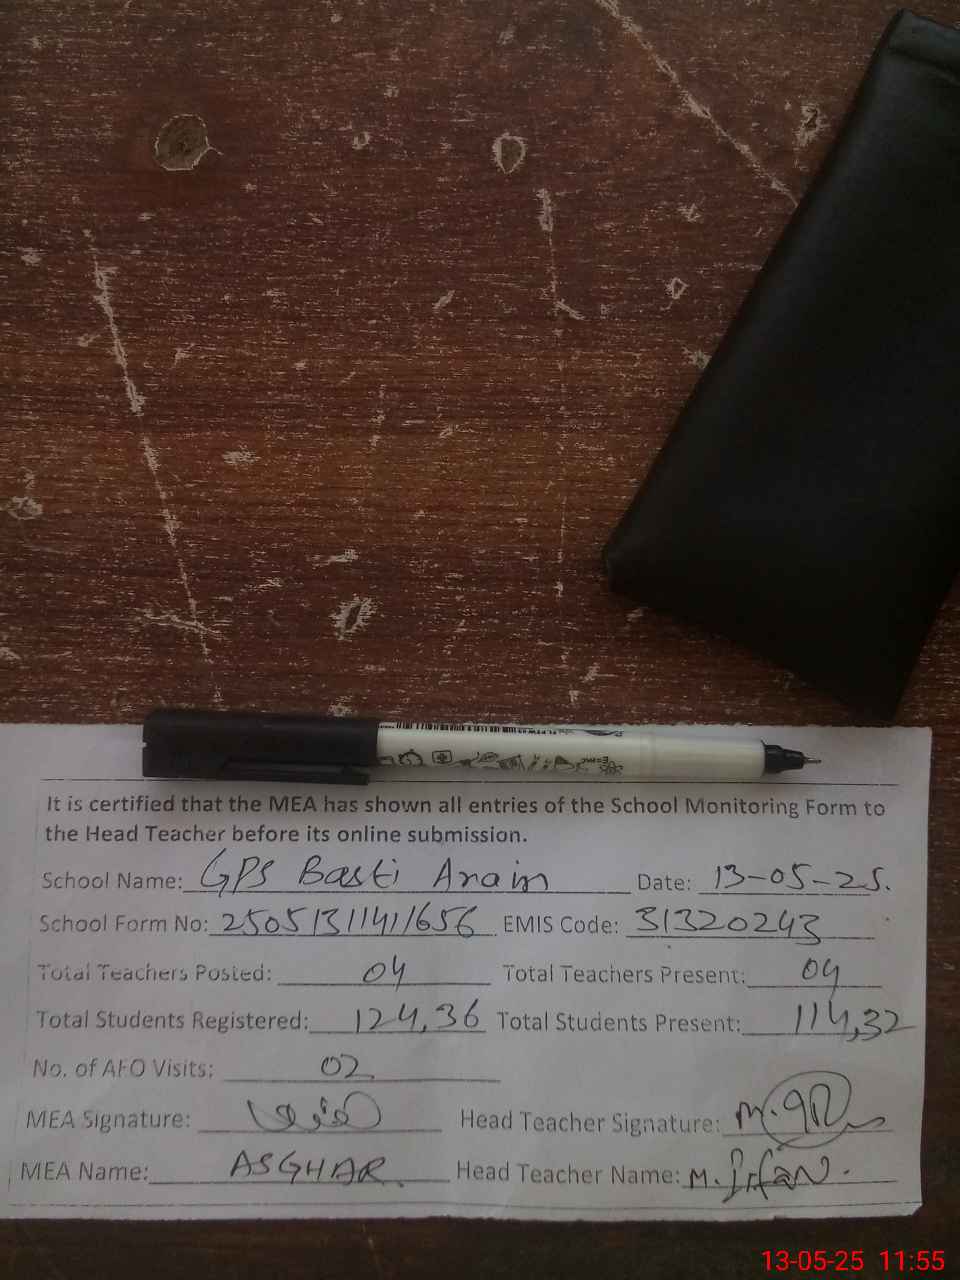 It is certified that the MEA has shown all entries of the School Monitoring Form to
the Head Teacher before its online submission.
School Name: GPS Basti Arain Date: 13-05-25.
School Form No: 25051311411656 EMIS Code: 31320243
Total Teachers Posted: 04 Total Teachers Present: 04
Total Students Registered: 124,36 Total Students Present: 114,32
No. of AEO Visits: 02
MEA Signature: Head Teacher Signature:
MEA Name: ASGHAR Head Teacher Name: M. Irfan.
13-05-25 11:55